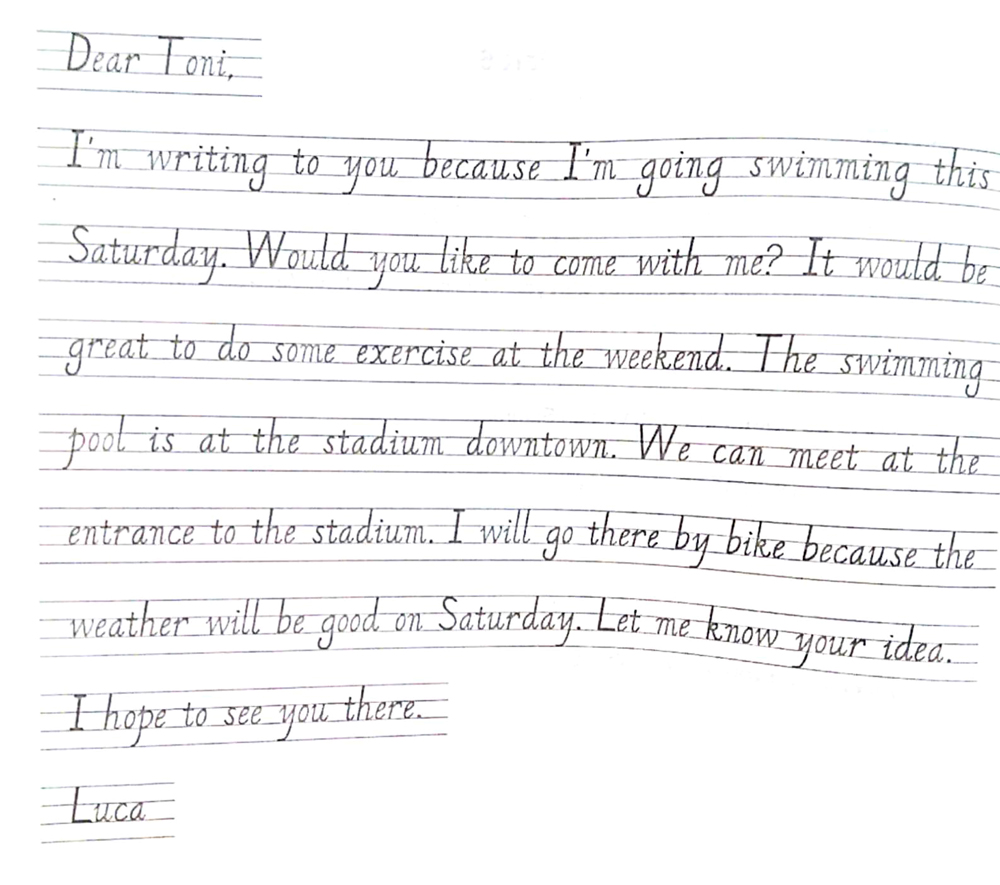 Dear Toni,
I'm writing to you because I'm going swimming this
Saturday. Would you like to come with me? It would be
great to do some exercise at the weekend. The swimming
pool is at the stadium downtown. We can meet at the
entrance to the stadium. I will go there by bike because the
weather will be good on Saturday. Let me know your idea.
I hope to see you there.
Luca